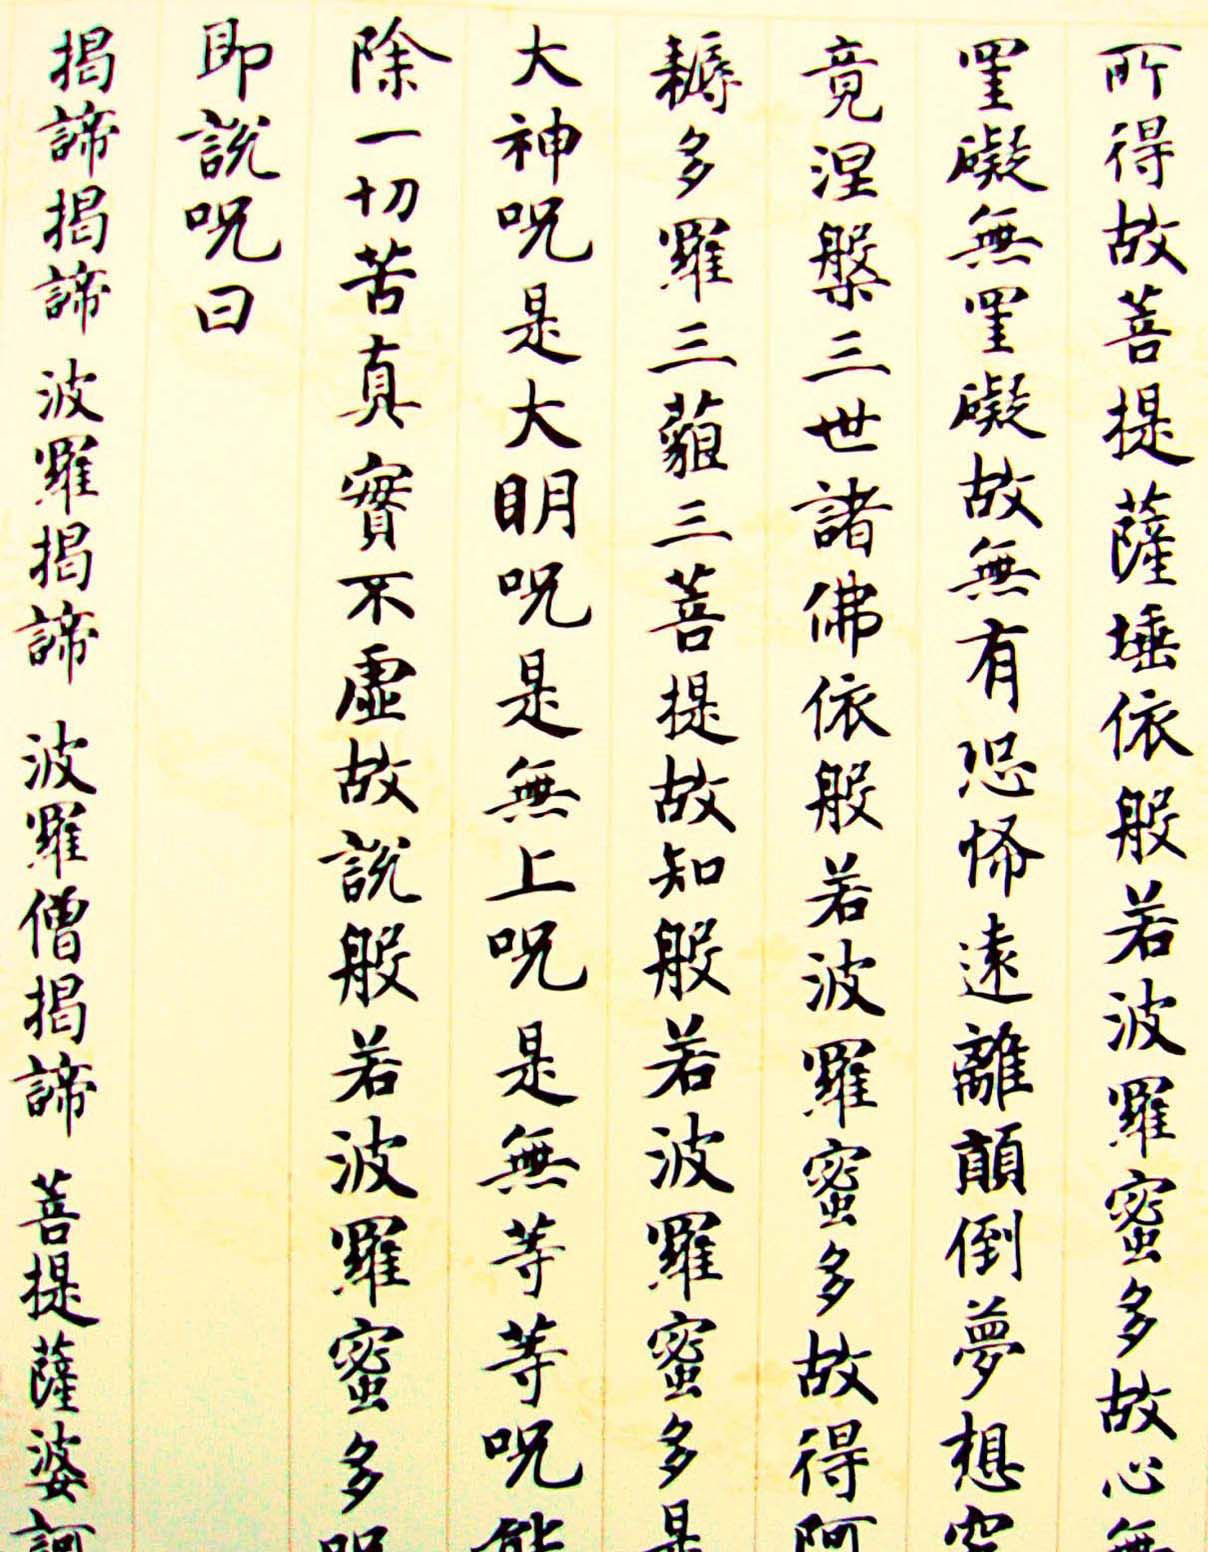 所得故菩提薩埵依般若波羅蜜多故心無
罣礙無罣礙故無有恐怖遠離顛倒夢想究
竟涅槃三世諸佛依般若波羅蜜多故得阿
耨多羅三藐三菩提故知般若波羅蜜多是
大神呪是大明呪是無上呪是無等等呪能
除一切苦真實不虛故說般若波羅蜜多呪
即說呪曰
揭諦揭諦 波羅揭諦 波羅僧揭諦 菩提薩婆訶